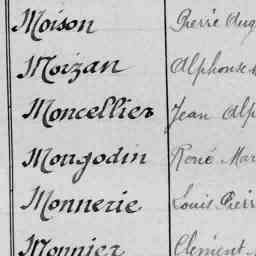 Moison Pierre Aug
Moizan Alphonse
Moncellier Jean Alp
Mongodin René Mar
Monnerie Louis Pierr
Monnier Clément